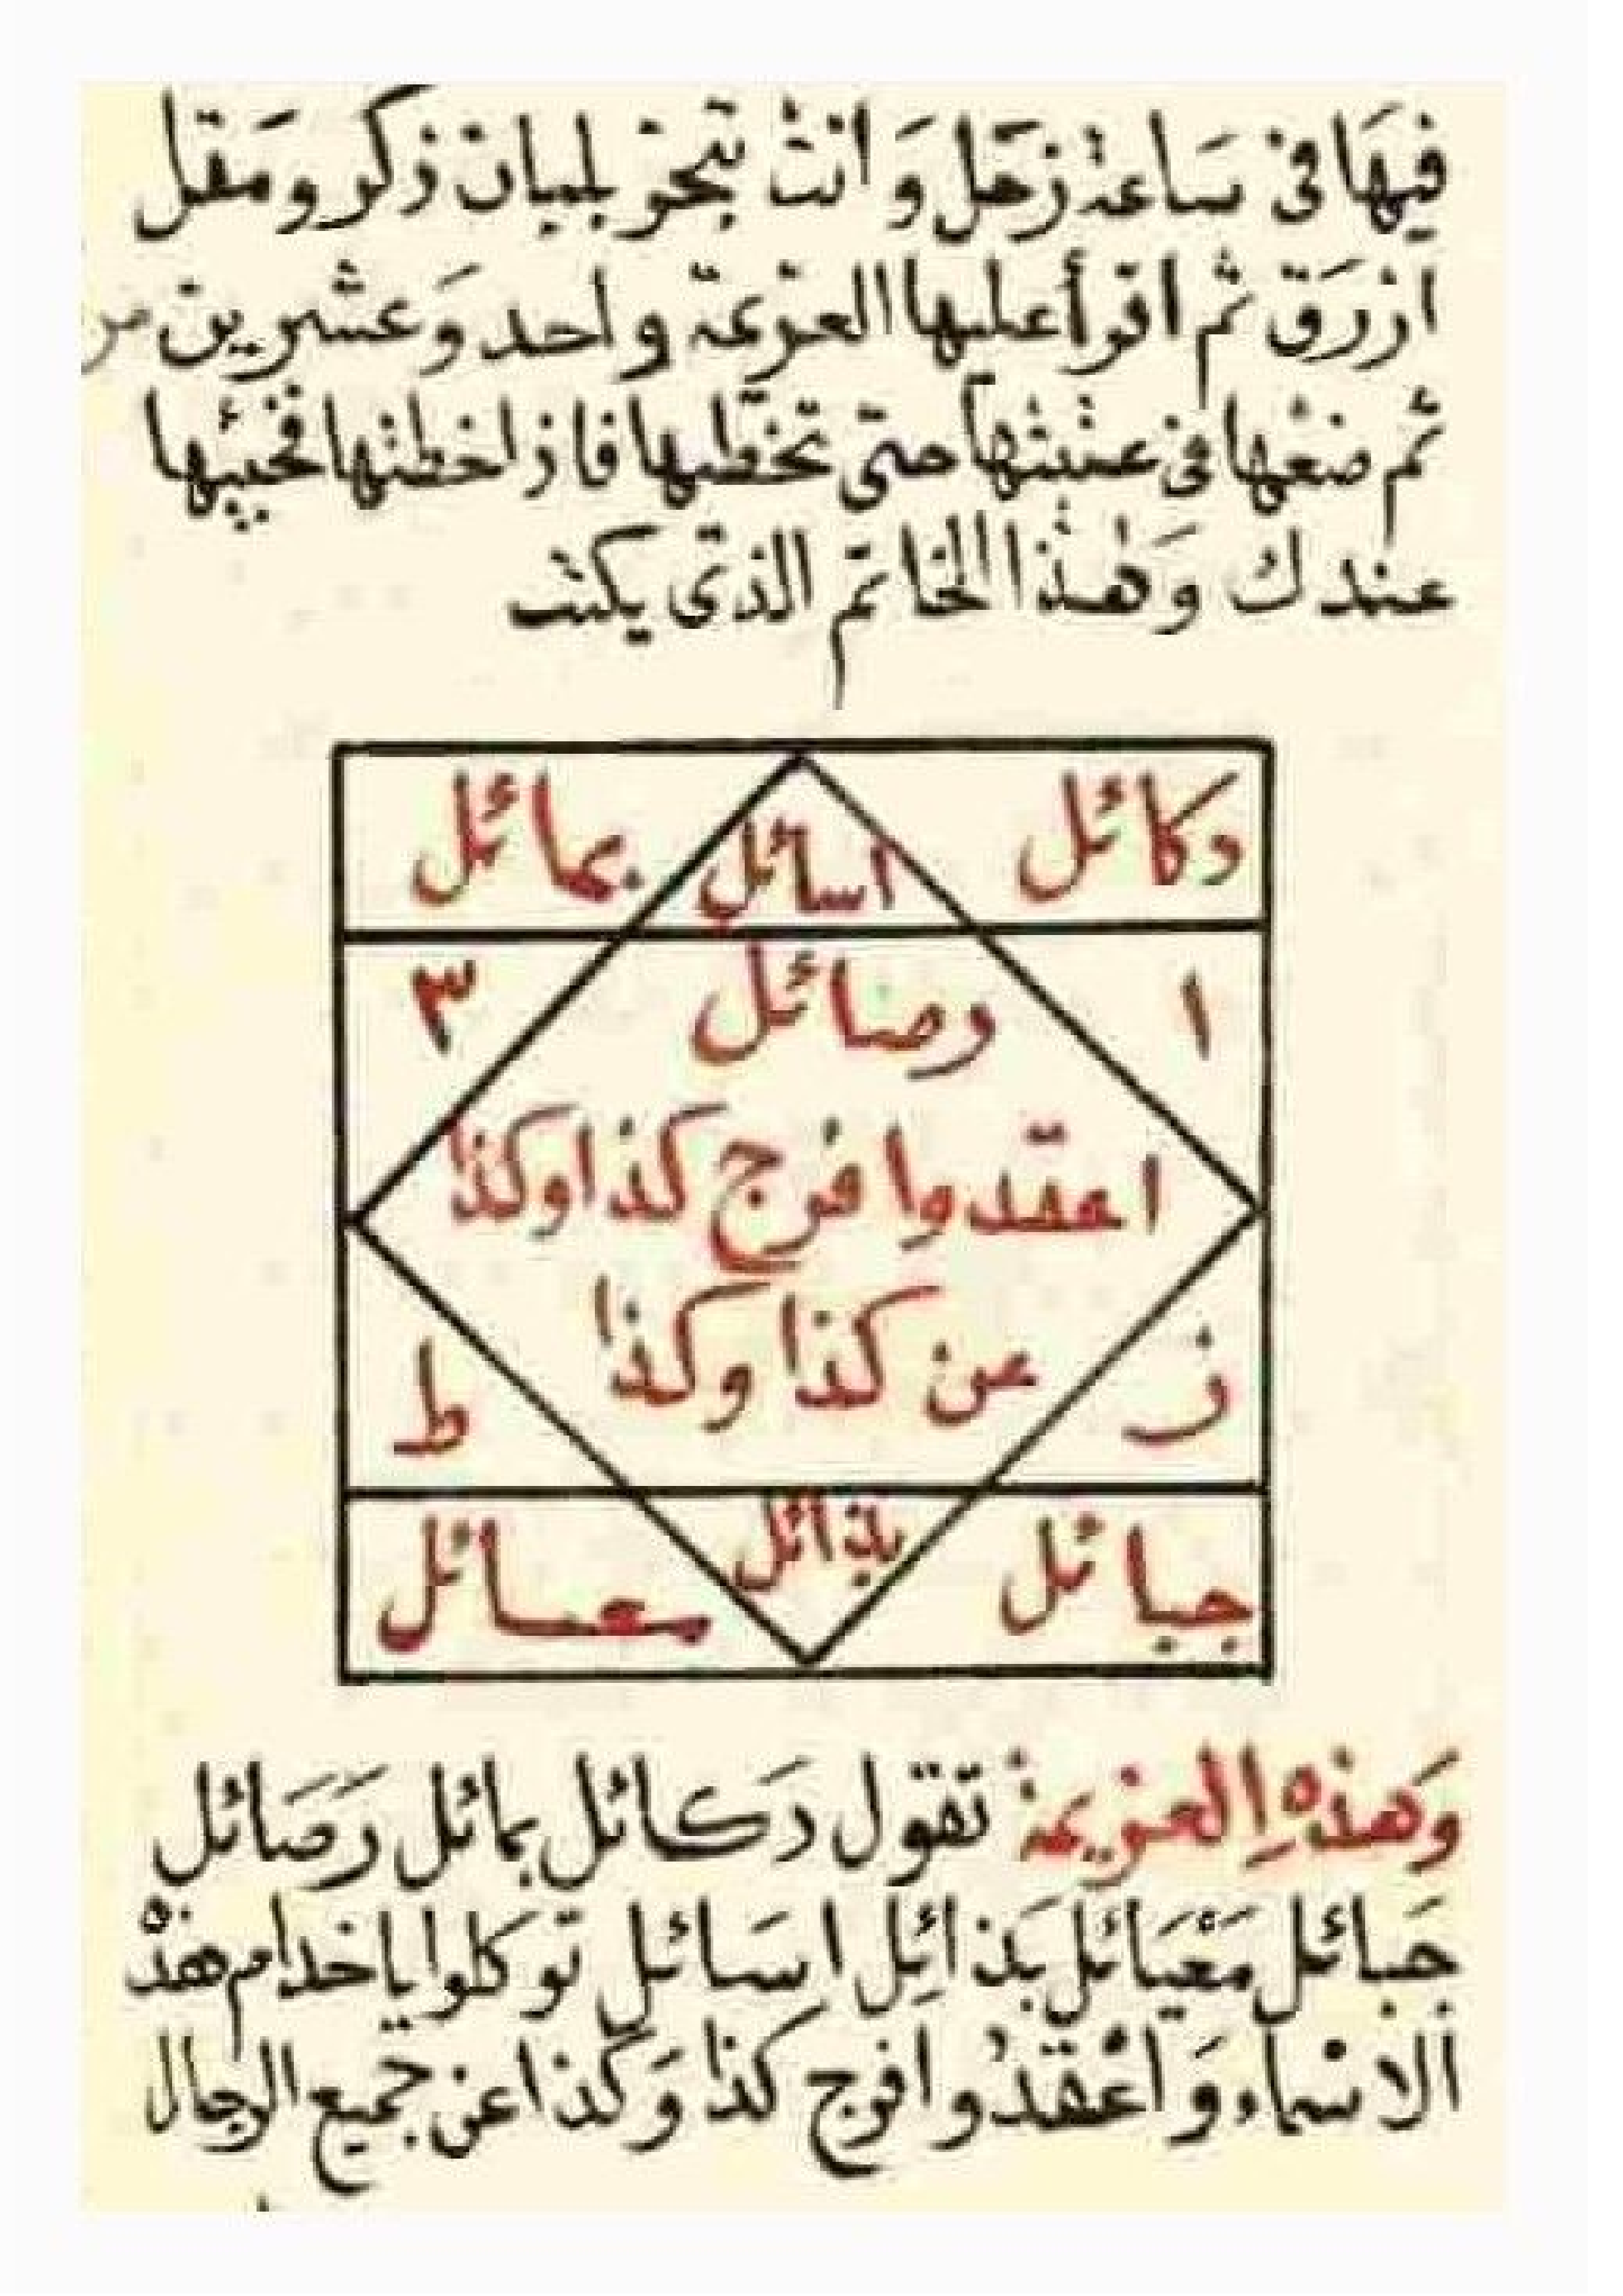 فيها فى ساعة زحل وانت تبخر بلبان ذكر ومقل
ازرق ثم اقرأ عليها العزيمة واحد وعشرين
ثم ضعها فى عتبتها حتى تخطيها فاذا خطتها فخبيها
عندك وهذا الخاتم الذى يكتب
وكائل اسائل يمائل
ا وصائل ٣
اعقدوا فرج كذا وكذا
عن كذا وكذا
ز ط
جبائل بذائل معسائل
وهذه العزيمة تقول دكائل يمائل رصائل
جبائل معيائل بذائل اسائل توكلوا يا خدام هذه
الاسماء واعقدوا فرج كذا وكذا عن جميع الرجال